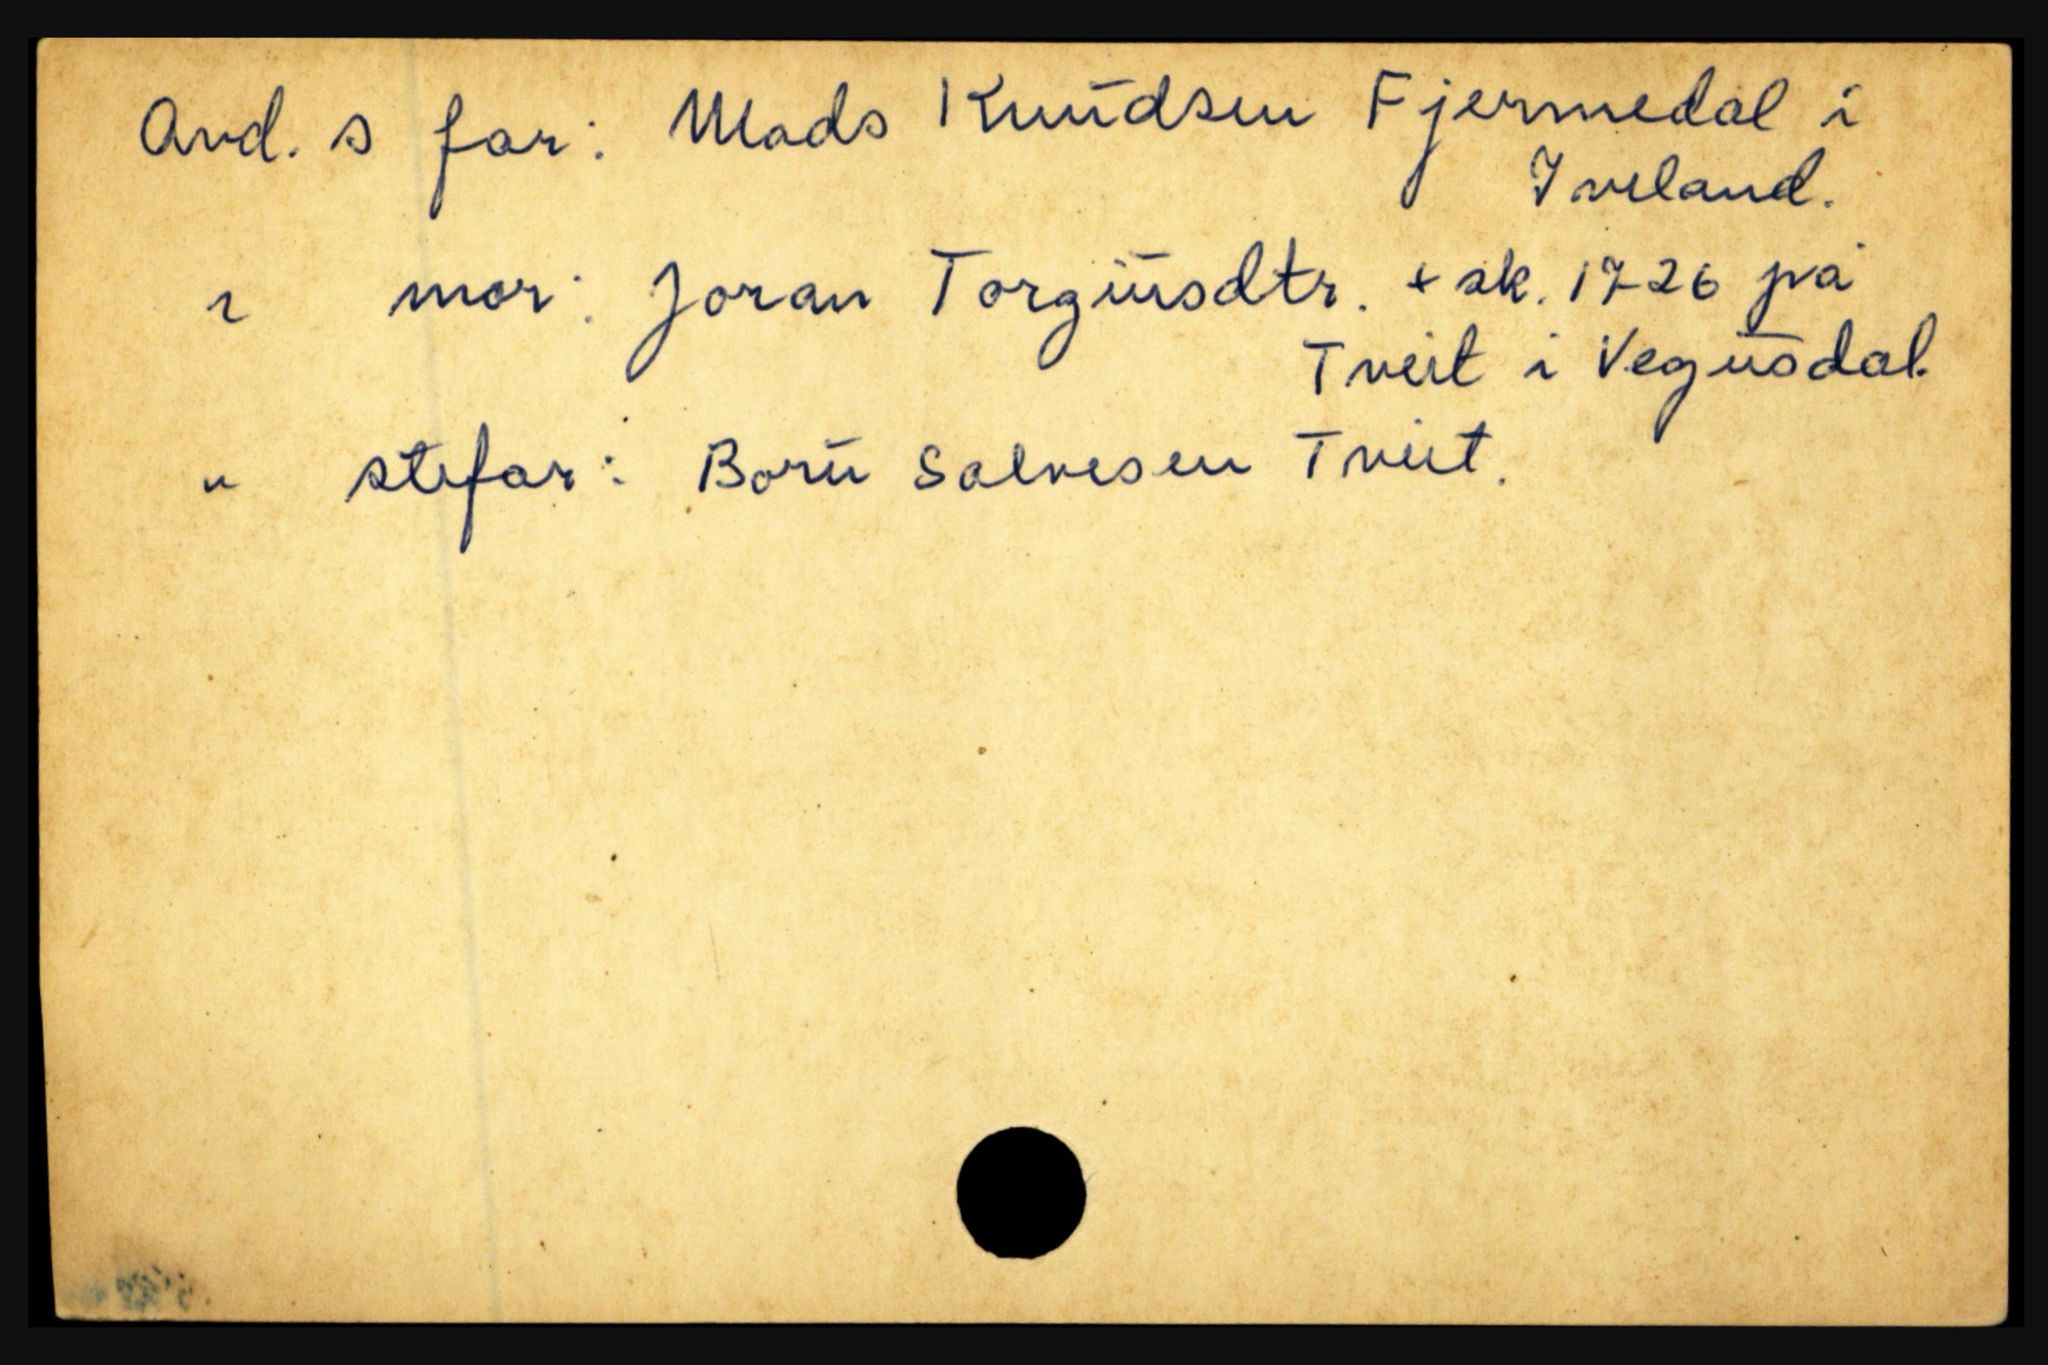 Avd. s far: Mads Knudsen Fjermedal i
Iveland.
" mor: Joran Torgusdtr. + sk. 1726 på
Tveit i Vegusdal.
" stefar: Boru Salvesen Tveit.